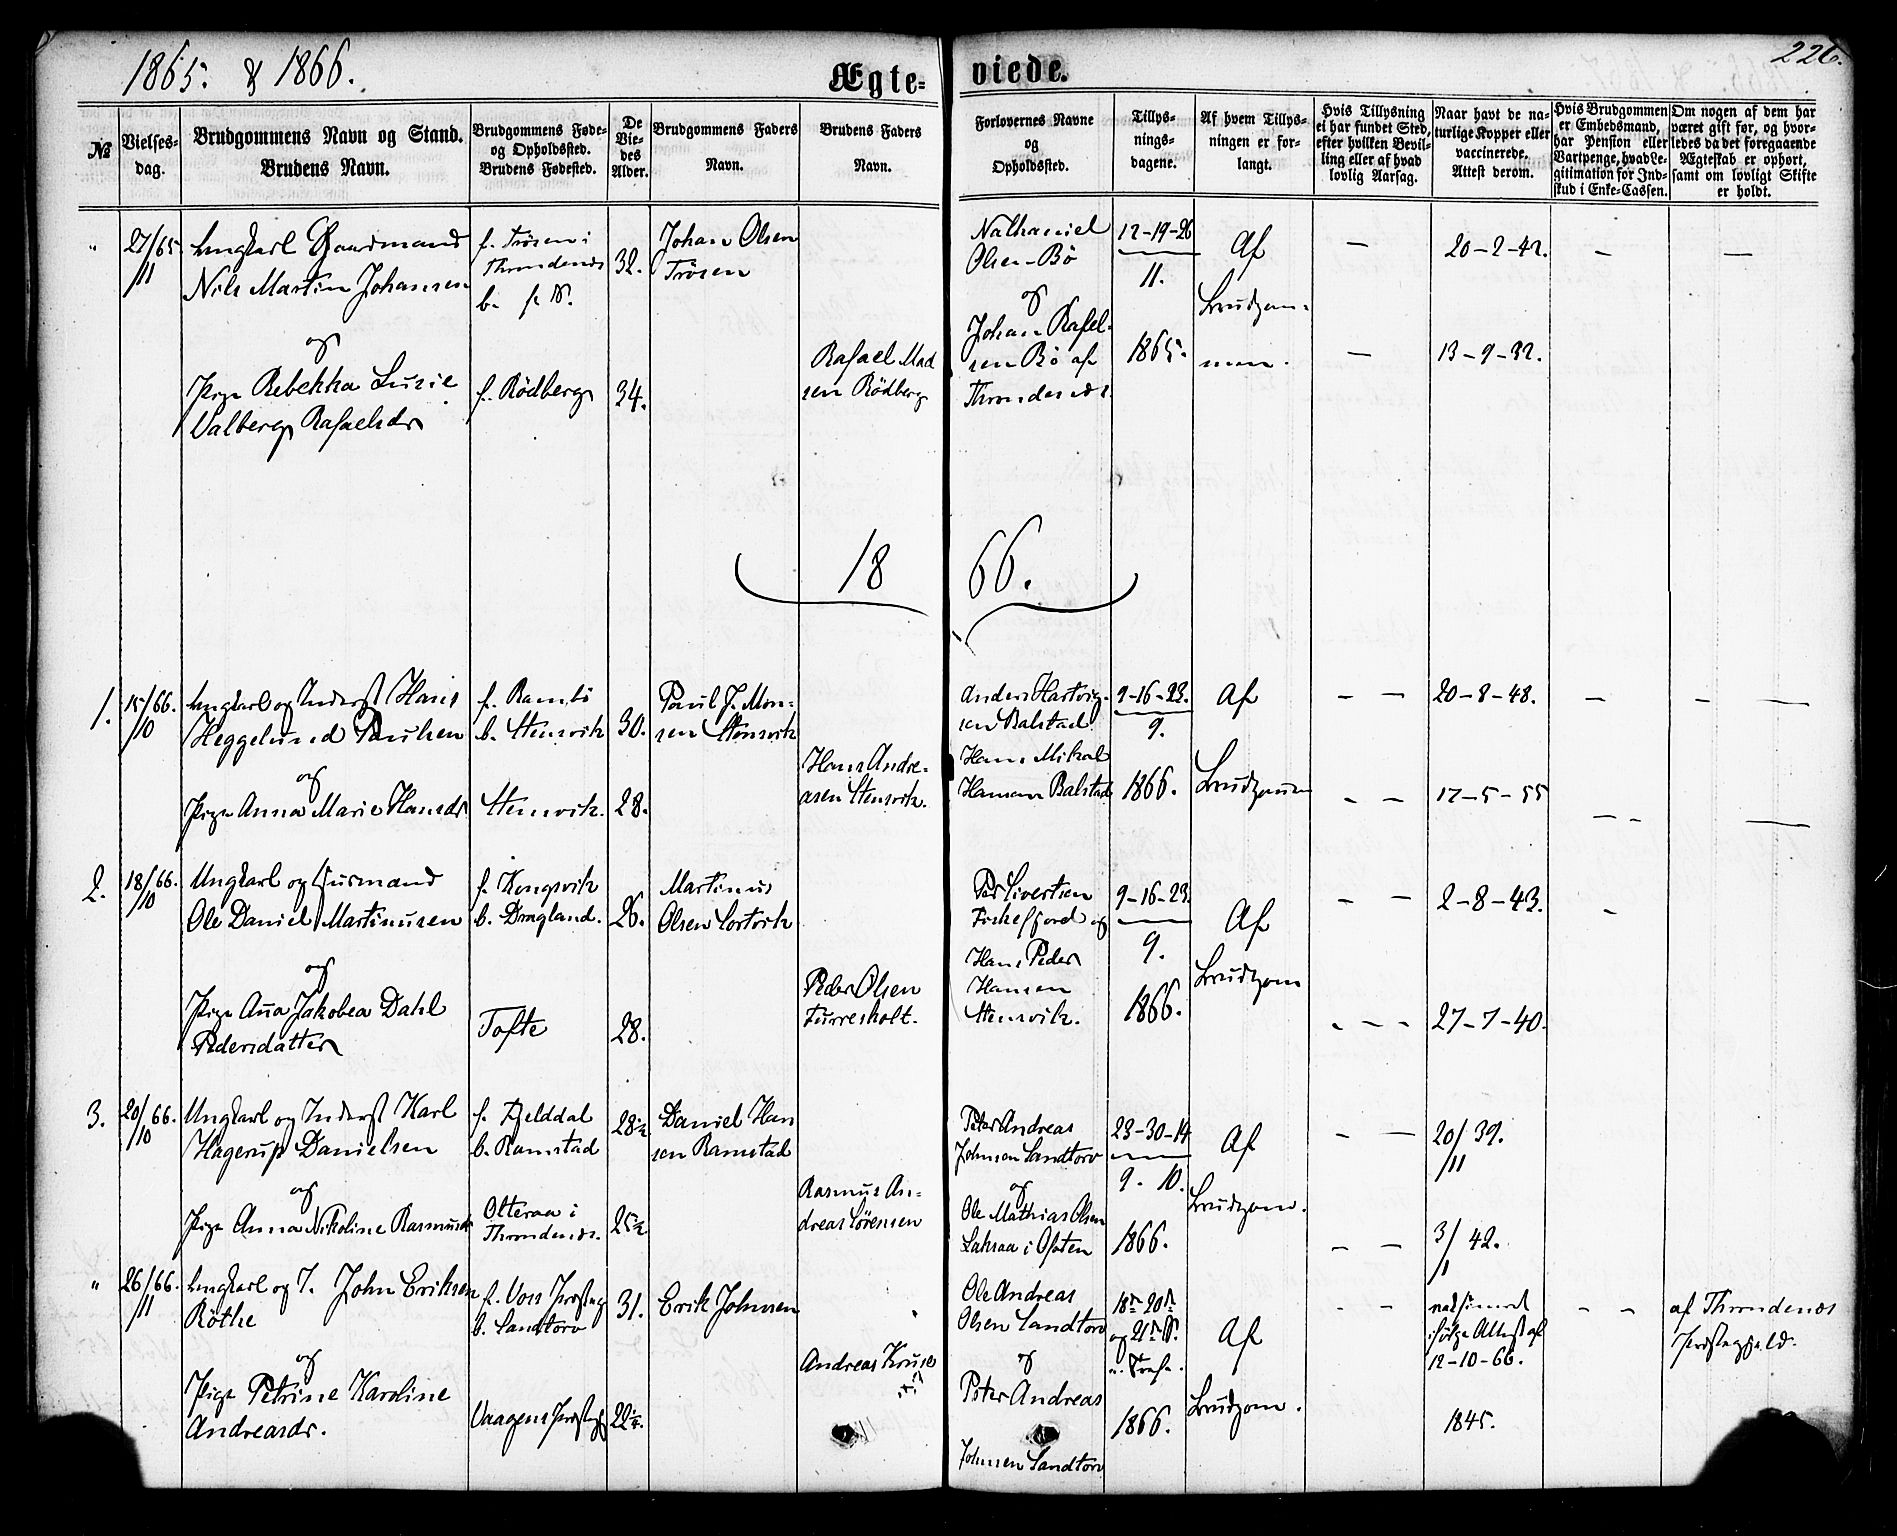 1865. & 1866.
Ægte-
viede.
226.
№
Vielses-
dag.
Brudgommens Navn og Stand.
Brudens Navn.
Brudgommens Føde-
og Opholdssted.
Brudens Fødested.
De
Vie-
des
Alder.
Brudgommens Faders
Navn.
Brudens Faders
Navn.
Forlovernes Navne
og
Opholdssted.
Tillys-
nings-
dagene.
Af hvem Tillys-
ningen er for-
langt.
Hvis Tillysning
ei har fundet Sted,
efter hvilken Bevil-
ling eller af hvad
lovlig Aarsag.
Naar havt de na-
turlige Kopper eller
vaccinerede.
Attest derom.
Hvis Brudgommen
er Embedsmand,
har Pension eller
Vartpenge, hvad Le-
gitimation for Ind-
skud i Enke-Cassen.
Om nogen af dem har
været gift før, og hvor-
ledes da det foregaaende
Ægteskab er ophørt,
samt om lovligt Skifte
er holdt.
" 27/65
/11
Ungkarl Gaardmand
Nils Martin Johansen
og
Pige Rebekka Lusie
Valberg Rafaelsdr
f. Trösen i
Throndenæs
b. f. N.
f. Rödberg
32.
34.
Johan Olsen
Trösen
Rafael Mad
sen Rödberg
Nathaniel
Olsen Bö
og
Johan Rafel-
sen Bö af
Throndenæs.
12-19-26
11.
1865.
Af
Brudgom-
men.
—
—
20-2-42.
13-9-32.
—
—
18 66.
1. 15/66.
/10
Ungkarl og Inderst Hans
Heggelund Paulsen
og
Pige Anna Marie Hansdr
f. Rambö
b. Stensvik
Stensvik.
30.
28.
Paul J. Mon-
sen Stensvik
Hans Andre-
asen Stensvik.
Anders Hartvig-
sen Balstad
Hans Mikal
Hansen Balstad
9-16-23.
9.
1866.
Af
Brudgommen
— —
— —
20-8-48.
17-5-55
2. 18/66.
/10
Ungkarl og Huusmand
Ole Daniel Martinusen
og
Pige Anna Jakobea Dahl
Pedersdatter
f. Kongsvik
b. Dragland.
Tofte
26.
28.
Martinus
Olsen Sortvik
Peder Olsen
Furresholt.
Per Sivertsen
Fiskefjord og
Hans Peder
Hansen
Stensvik.
9-16-23.
9.
1866.
Af
Brudgom
2-8-43.
27-7-40.
3. 20/66.
/10
Ungkarl og Inderst Karl
Hagerup Danielsen
og
Pige Anna Nikoline Rasmusdr
f. Fjelddal
b. Ramstad
Olteraa i
Throndenæs.
28½
25½
Daniel Han
sen Ramstad
Rasmus An-
dreas Sörensen
Peter Andreas
Johnsen Sandtorv
og
Ole Mathias Olsen
Laksaa i Ofoten
23-30-14
9. 10.
1866.
Af
Brudgom.
20/39.
/11
3/42.
/1
" 26/66.
/11
Ungkarl og I. John Eriksen
Röthe
og
Pige Petrine Karoline
Andreasdr.
f. Voss Præsteg
b. Sandtorv
Vaagens Præstegj
31.
22¼.
Erik Johnsen
Andreas Kruse
Ole Andreas
Olsen Sandtorv
og
Peter Andreas
Johnsen Sandtorv
18de 20de
og 21de S.
1866.
Af
Brudgom.
ifölge Attest af
12-10-66.
1845.
af Throndenæs
Præstegjeld.